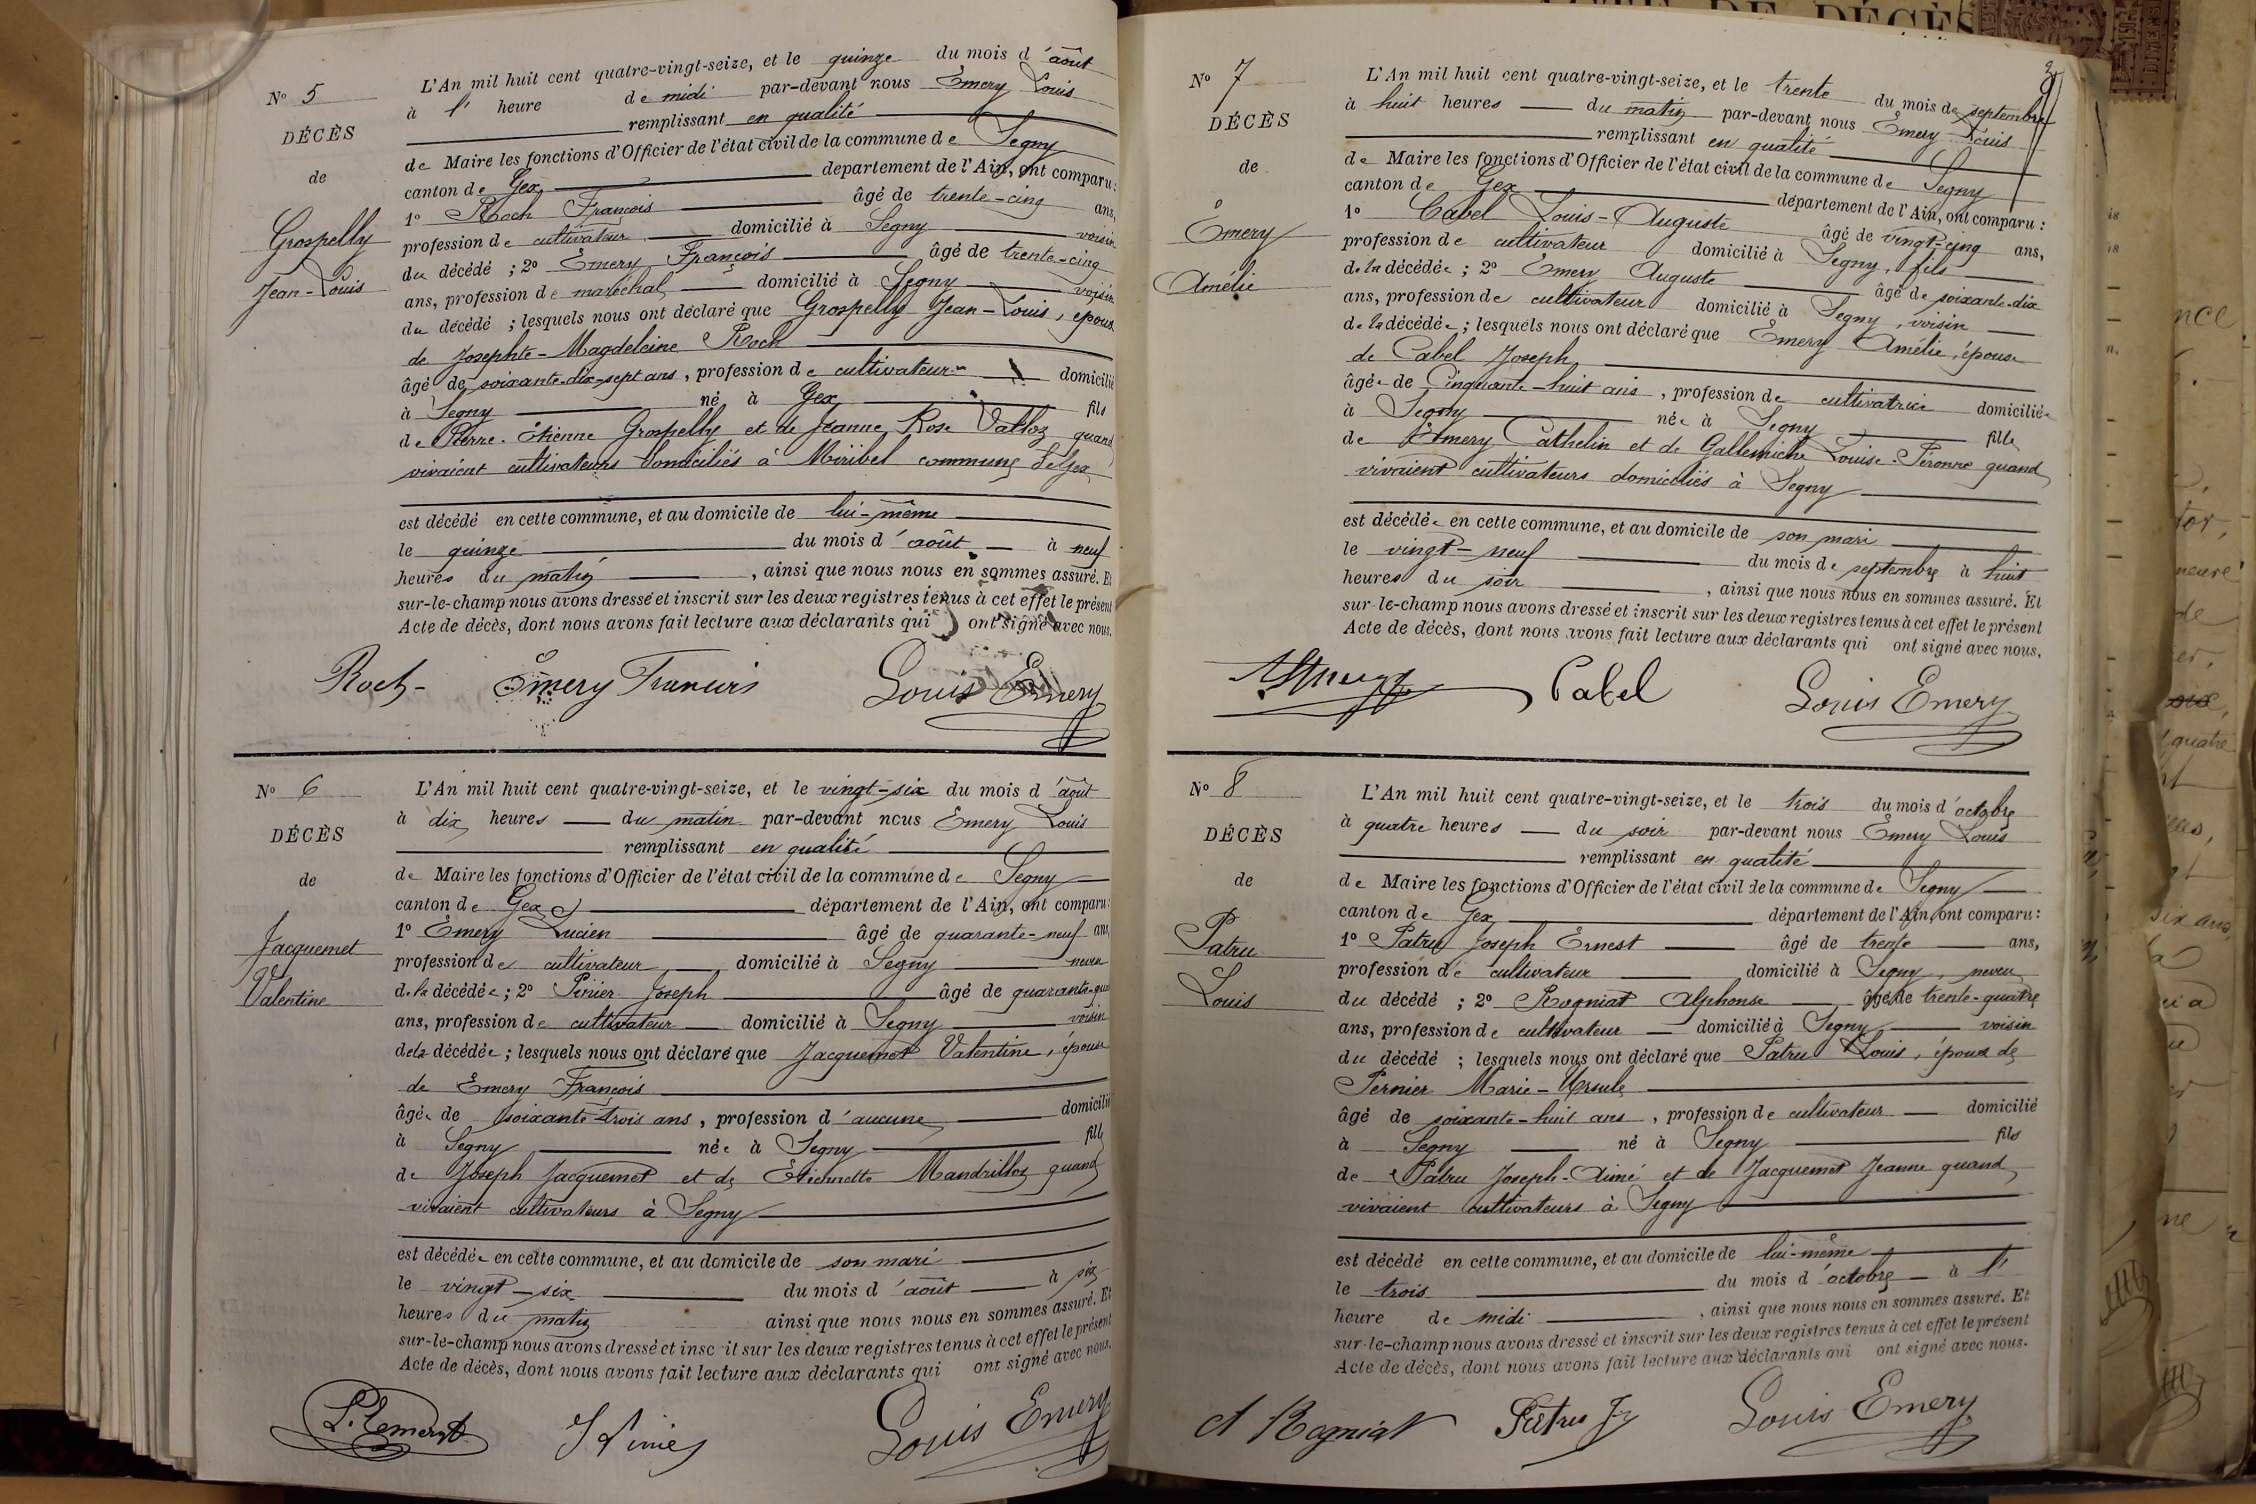 ACTE DE DÉCÈS
N° 5
DÉCÈS
de
Grospelly
Jean-Louis
L'An mil huit cent quatre-vingt-seize, et le quinze du mois d'août
à 1' heure de midi par-devant nous Emery Louis
remplissant en qualité
de Maire les fonctions d'Officier de l'état civil de la commune de Segny
canton de Gex département de l'Ain, ont comparu:
1° Roch François âgé de trente-cinq ans,
profession de cultivateur domicilié à Segny voisin
du décédé ; 2° Emery François âgé de trente-cinq
ans, profession de maréchal domicilié à Segny voisin
du décédé ; lesquels nous ont déclaré que Grospelly Jean-Louis, époux
de Josephte-Magdeleine Roch
âgé de soixante-dix-sept ans, profession de cultivateur domicilié
à Segny né à Gex fils
de Pierre-Etienne Grospelly et de Jeanne Rose Valloz quand
vivaient cultivateurs domiciliés à Miribel commune de Gex
est décédé en cette commune, et au domicile de lui-même
le quinze du mois d'août à neuf
heures du matin, ainsi que nous nous en sommes assuré. Et
sur-le-champ nous avons dressé et inscrit sur les deux registres tenus à cet effet le présent
Acte de décès, dont nous avons fait lecture aux déclarants qui ont signé avec nous.
Roch Emery Francois Louis Emery
N° 6
DÉCÈS
de
Jacquemet
Valentine
L'An mil huit cent quatre-vingt-seize, et le vingt-six du mois d'août
à dix heures du matin par-devant nous Emery Louis
remplissant en qualité
de Maire les fonctions d'Officier de l'état civil de la commune de Segny
canton de Gex département de l'Ain, ont comparu:
1° Emery Lucien âgé de quarante-neuf ans,
profession de cultivateur domicilié à Segny neveu
de la décédée ; 2° Pinier Joseph âgé de quarante-qua
ans, profession de cultivateur domicilié à Segny voisin
de la décédée ; lesquels nous ont déclaré que Jacquemet Valentine, épouse
de Emery François
âgée de soixante-trois ans, profession d'aucune domicilié
à Segny née à Segny fille
de Joseph Jacquemet et de Etiennette Mandrilloz quand
vivaient cultivateurs à Segny
est décédée en cette commune, et au domicile de son mari
le vingt-six du mois d'août à six
heures du matin ainsi que nous nous en sommes assuré. Et
sur-le-champ nous avons dressé et insc it sur les deux registres tenus à cet effet le présent
Acte de décès, dont nous avons fait lecture aux déclarants qui ont signé avec nous.
L. Emery Louis Emery
N° 7
DÉCÈS
de
Emery
Amélie
L'An mil huit cent quatre-vingt-seize, et le trente du mois de septembre
à huit heures du matin par-devant nous Emery Louis
remplissant en qualité
de Maire les fonctions d'Officier de l'état civil de la commune de Segny
canton de Gex département de l'Ain, ont comparu :
1° Cabel Louis-Auguste âgé de vingt-cinq ans,
profession de cultivateur domicilié à Segny, fils
de la décédée ; 2° Emery Auguste âgé de soixante-dix
ans, profession de cultivateur domicilié à Segny, voisin
de la décédée ; lesquels nous ont déclaré que Emery Amélie, épouse
de Cabel Joseph
âgée de Cinquante-huit ans, profession de cultivatrice domiciliée
à Segny née à Segny fille
de Emery Cathelin et de Gallemiche Louise-Péronne quand
vivaient cultivateurs domiciliés à Segny
est décédée en cette commune, et au domicile de son mari
le vingt-neuf du mois de septembre à huit
heures du soir, ainsi que nous nous en sommes assuré. Et
sur-le-champ nous avons dressé et inscrit sur les deux registres tenus à cet effet le présent
Acte de décès, dont nous avons fait lecture aux déclarants qui ont signé avec nous.
AEmery Cabel Louis Emery
N° 8
DÉCÈS
de
Patru
Louis
L'An mil huit cent quatre-vingt-seize, et le trois du mois d'octobre
à quatre heures du soir par-devant nous Emery Louis
remplissant en qualité
de Maire les fonctions d'Officier de l'état civil de la commune de Segny
canton de Gex département de l'Ain, ont comparu :
1° Patru Joseph Ernest âgé de trente ans,
profession de cultivateur domicilié à Segny, neveu
du décédé ; 2° Rogniat Alphonse âgé de trente-quatre
ans, profession de cultivateur domicilié à Segny voisin
du décédé ; lesquels nous ont déclaré que Patru Louis, époux de
Pernier Marie-Ursule
âgé de soixante-huit ans, profession de cultivateur domicilié
à Segny né à Segny fils
de Patru Joseph-Aimé et de Jacquemet Jeanne quand
vivaient cultivateurs à Segny
est décédé en cette commune, et au domicile de lui-même
le trois du mois d'octobre à 1'
heure de midi, ainsi que nous nous en sommes assuré. Et
sur-le-champ nous avons dressé et inscrit sur les deux registres tenus à cet effet le présent
Acte de décès, dont nous avons fait lecture aux déclarants qui ont signé avec nous.
A Rogniat Louis Emery